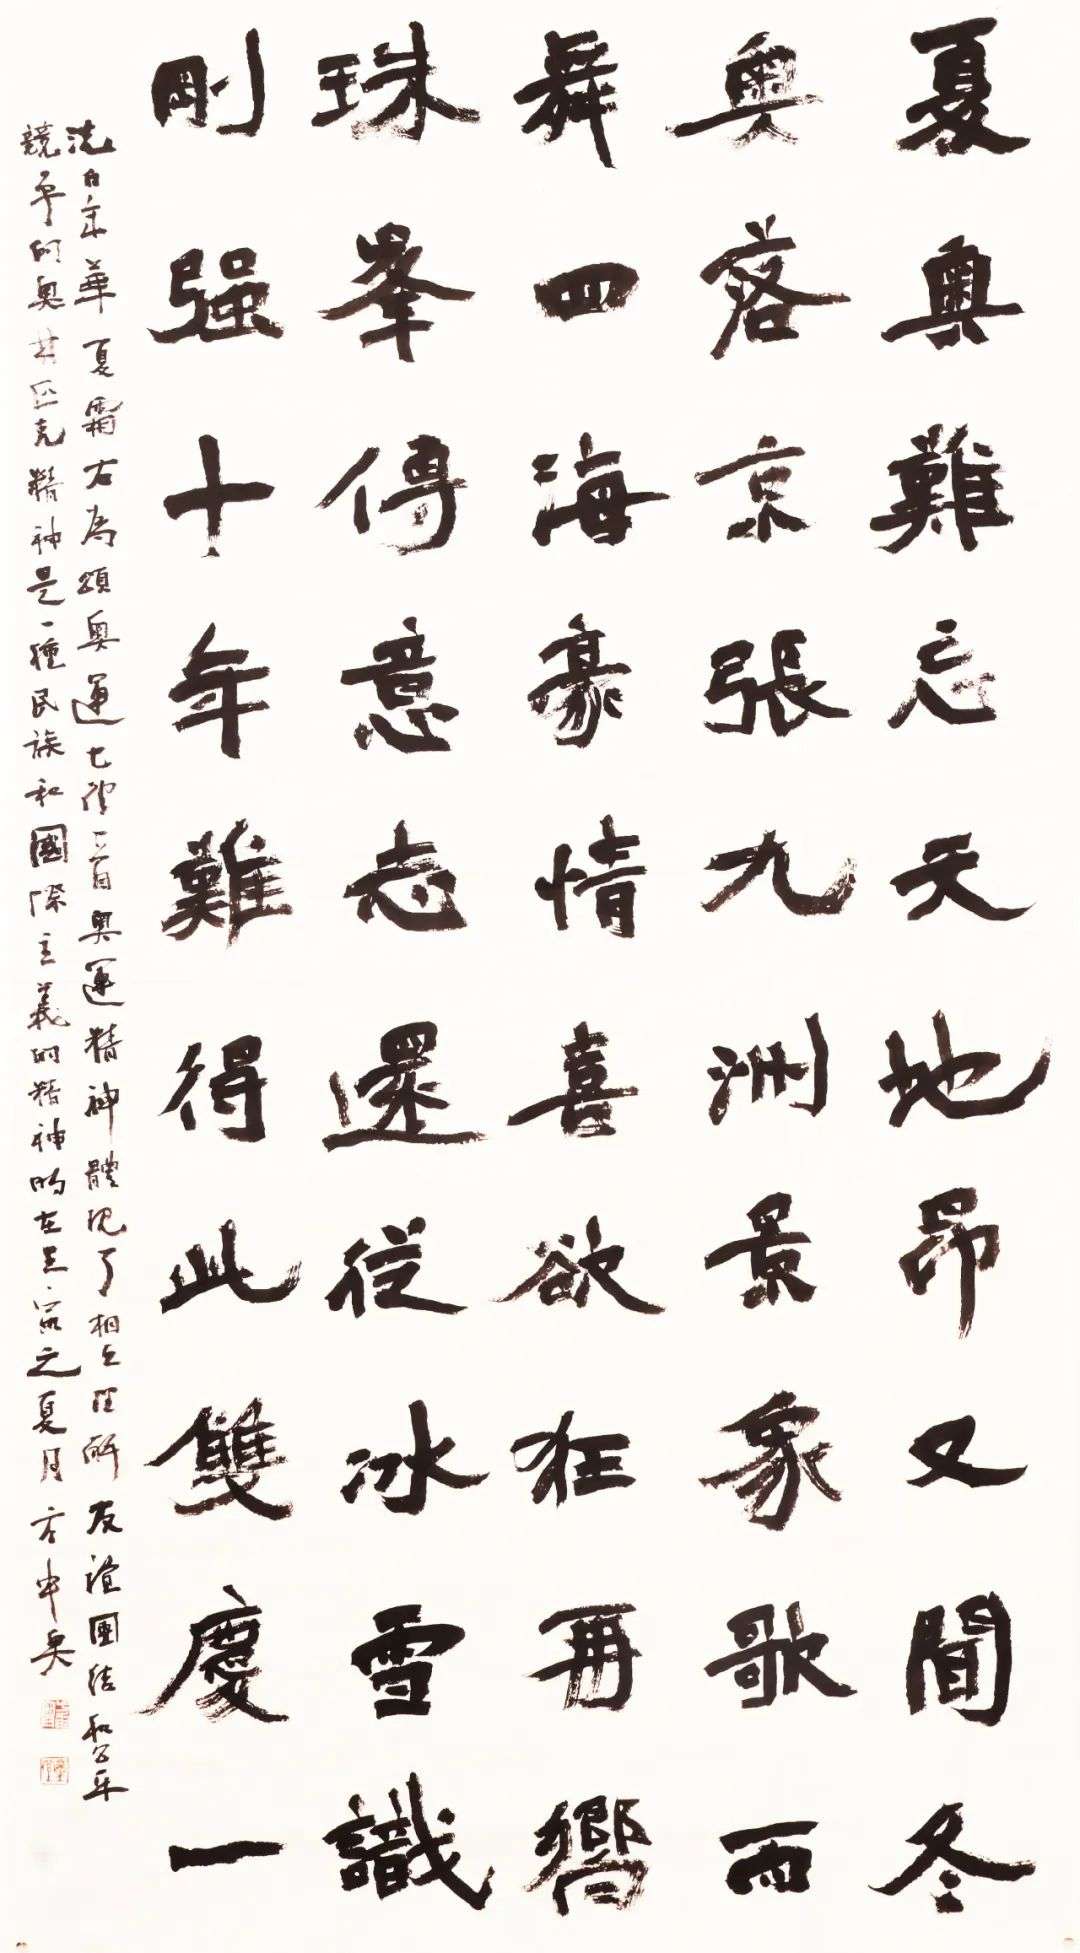 夏奧難忘天地昂又聞冬
奧落京張九洲景象歌而
舞四海豪情喜欲狂再嚮
珠峯傳意志還從冰雪識
剛强十年難得此雙慶一
洗百年華夏霜右為頌奧運七律一首奧運精神體現了相互理解友誼團結和公平
競爭的奧林匹克精神是一種民族和國際主義的精神時在壬寅之夏月方中